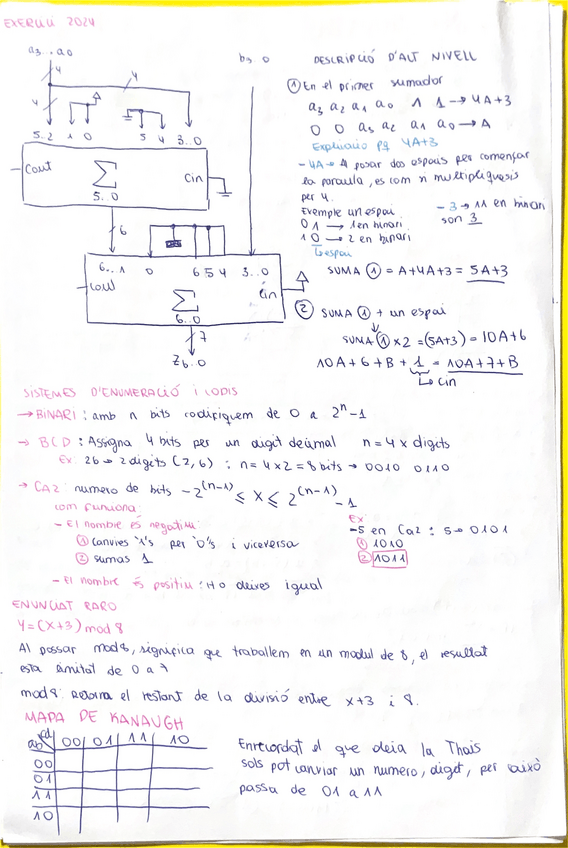 EXERCICI 2024
a3...a0
b3 0
4
4
4
5..2 1 0
5 4 3..0
Cout
Σ
5..0
Cin
6
6..1 0
6 5 4 3..0
Cout
Σ
6..0
Cin
7
Z6..0
DESCRIPCIÓ D'ALT NIVELL
① En el primer sumador
a3 a2 a1 a0 1 1 → 4A+3
0 0 a3 a2 a1 a0 → A
Explicació pq 4A+3
- 4A → A posar dos espais per començar
la paraula, es com si multipliquesis
per 4.
Exemple un espai
0 1 → 1 en binari
1 0 → 2 en binari
↳ espai
- 3 → 11 en binari
son 3
SUMA ① = A+4A+3 = 5A+3
② SUMA ① + un espai
SUMA ① x2 = (5A+3) = 10A+6
10A+6+B+1 = 10A+7+B
↳ Cin
SISTEMES D'ENUMERACIÓ i CODIS
→ BINARI: amb n bits codifiquem de 0 a 2^n-1
→ BCD: Assigna 4 bits per un digit decimal n=4 x digits
Ex: 26 → 2 digits (2,6) : n=4x2=8 bits → 0010 0110
→ CA2: numero de bits -2^(n-1) ≤ X ≤ 2^(n-1) -1
com funciona:
- El nombre és negatiu:
① canvies '1's per '0's i viceversa
② sumas 1
Ex:
-5 en Ca2 : 5→ 0101
① 1010
② 1011
- El nombre és positiu: Ho deixes igual
ENUNCIAT RARO
Y=(X+3) mod 8
Al possar mod8, significa que traballem en un modul de 8, el resultat
esta limitat de 0 a 7
mod8: Retorna el restant de la divisió entre x+3 i 8.
MAPA DE KANAUGH
cd
ab 00 01 11 10
00
01
11
10
Enrecordat el que deia la Thais
sols pot canviar un numero, digit, per aixó
passa de 01 a 11